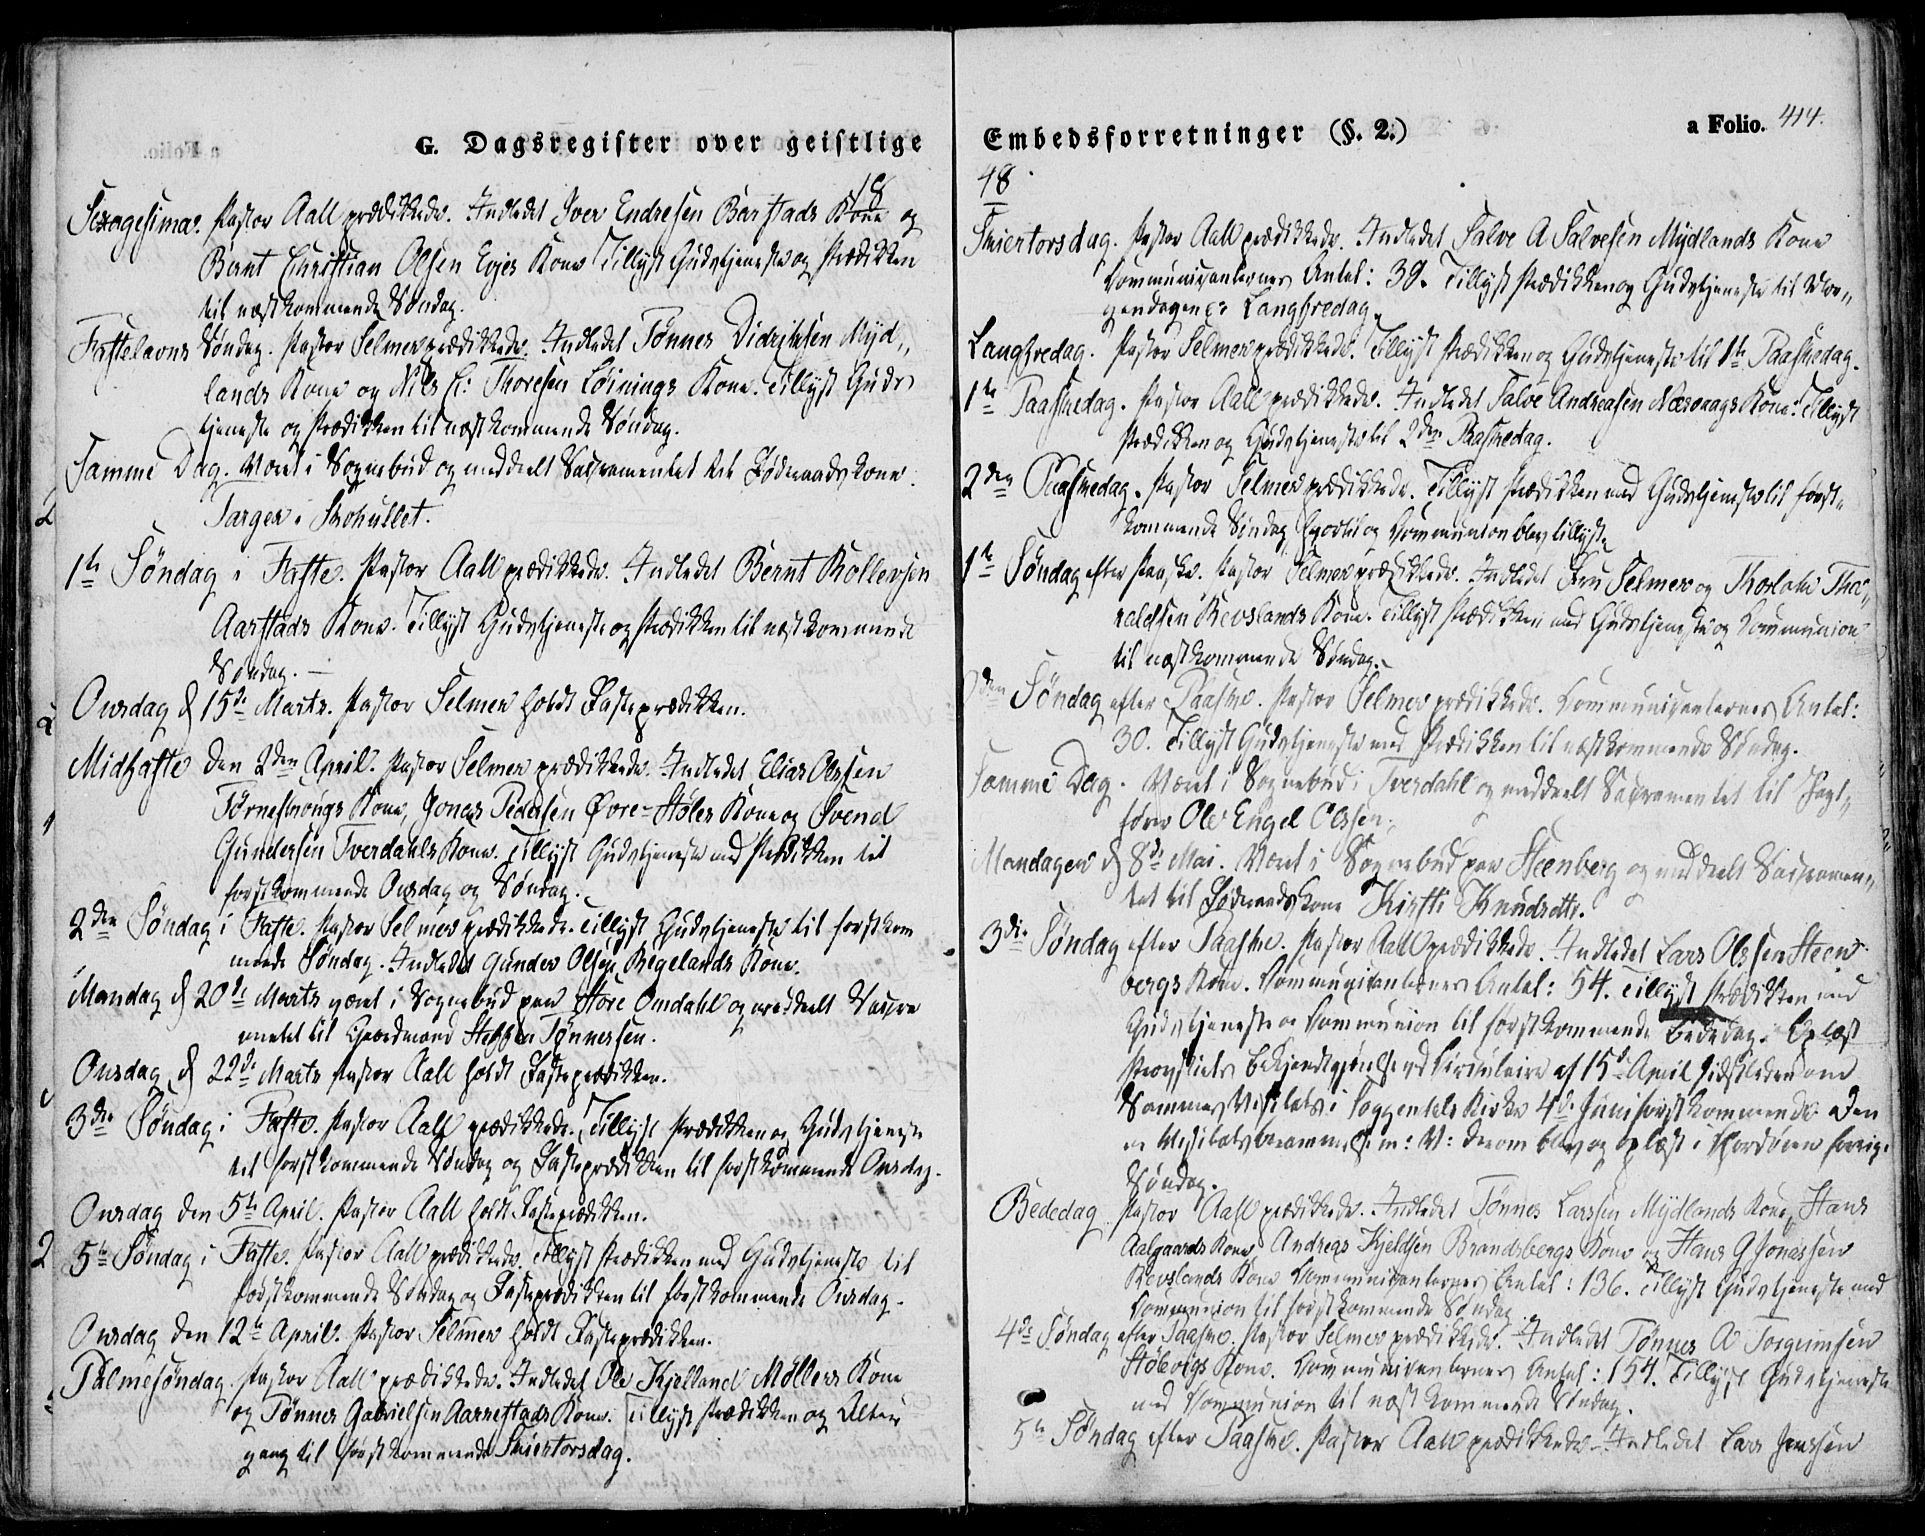 G. Dagsregister over geistlige
18
Sexagesima. Pastor Aall prædikede. Indledet Iver Endresen Barstads Kone og
Bernt Christian Olsen Eyes Kone Tillyst Gudstjeneste og Prædikken
til næstkommende Søndag.
Fastelavns Søndag. Pastor Selmer prædikkede. Indledet Tønnes Didriksen Myd„
lands Kone og Nils C: Thoresen Løinings Kone. Tillyst Guds
tjeneste og Prædikken til næstkommende Søndag.
Samme Dag. Været i Sognebud og meddeelt Sacramentet til Kone
Targer i Skohullet.
1te Søndag i Faste. Pastor Aall prædikkede. Indledet Bernt Rollevsen
Aarstads Kone. Tillyst Gudstjeneste og Prædikken til næstkommende
Søndag.
Onsdag d 15de Marts. Pastor Selmer holdt Fasteprædikken.
Midfaste den 2den April. Pastor Selmer prædikkede. Indledet Elias Olssen
Kone, Jonas Pedersen Øvre-Støles Kone og Svend
Gundersen Tverdahls Kone. Tillyst Gudstjeneste med Prædikken til
førstkommende Onsdag og Søndag.
2den Søndag i Faste. Pastor Selmer prædikkede. Tillyst Gudstjeneste til førstkom
mende Søndag. Indledet Gunder Olsen Regelands Kone.
Mandag d 20de Marts været i Sognebud paa Store Omdahl og meddeelt Sacra
mentet til Gaardmand Steffen Tønnessen.
Onsdag d 22de Marts Pastor Aall holdt Fasteprædikken.
3die Søndag i Faste. Pastor Aall prædikkede. Tillyst Prædikken og Gudstjeneste
til førstkommende Søndag og Fasteprædikken til førstkommende Onsdag.
Onsdag den 5te April. Pastor Aall holdt Fasteprædikken.
5te Søndag i Faste. Pastor Aall prædikkede. Tillyst Prædikken med Gudstjeneste til
førstkommende Søndag og Fasteprædikken til førstkommende Onsdag.
Onsdag den 12te April. Pastor Selmer holdt Fasteprædikken.
Palmesøndag. Pastor Aall prædikkede. Indledet Ole Kjelland Møllers Kone
og Tønnes Gabrielsen Aarrestads Kone. Tillyst Prædikken og Alter
gang til førstkommende Skiertorsdag.
Embedsforretninger (§. 2.)
a Folio. 414.
48
Skiertorsdag. Pastor Aall prædikkede. Indledet Salve A Salvesen Mydlands Kone
Communicanternes Antal: 39. Tillyst Prædikken og Gudstjeneste til Mor„
gendagen: Langfredag.
Langfredag. Pastor Selmer prædikkede. Tillyst Prædikken og Gudstjeneste til 1te Paaskedag.
1te Paaskedag. Pastor Aall prædikkede. Indledet Salve Andreasen Kone: Tillyst
Prædikken og Gudstjeneste til 2den Paaskedag.
2den Paaskedag. Pastor Selmer prædikkede. Tillyst Prædikken med Gudstjeneste til først„
kommende Søndag og Communion blev tillyst.
1te Søndag efter Paaske. Pastor Selmer prædikkede. Indledet Fru Selmer og Tho„
raldsen Refslands Kone. Tillyst Prædikken med Gudstjeneste og Communion
til næstkommende Søndag.
2den Søndag efter Paaske. Pastor Selmer prædikkede. Communicanternes Antal:
30. Tillyst Gudstjeneste med Prædikken til næstkommende Søndag.
Samme Dag. Været i Sognebud i Tverdahl og meddeelt Sacramentet til
Ole Engel Olssen.
Mandagen d 8de Mai. Været i Sognebud paa Steenberg og meddeelt Sacramen„
tet til Kone Kirsti Knudsdtr.
3die Søndag efter Paaske. Pastor Aall prædikkede. Indledet Lars Olssen Steen
bergs Kone. Communicanternes Antal: 54. Tillyst Prædikken med
Gudstjeneste og Communion til førstkommende Bededag. Oplæst
Provstiets Bekjendtgjørelse ved Circulaire af 15de April sidstleden om
Visitats i Soggendals Kirke 4de Juni førstkommende. Den
Visitats m: V: derom blev og oplæst i forrige
Søndag.
Bededag. Pastor Aall prædikkede. Indledet Tønnes Larssen Mydlands Kone, Hans
Aalgaards Kone, Andreas Kjeldsen Brandsbergs Kone og Hans G Jonassen
Refslands Kone Communicanternes Antal: 136. Tillyst Gudstjeneste med
Communion til førstkommende Søndag.
4de Søndag efter Paaske. Pastor Selmer prædikkede. Indledet Tønnes A Torgrimsen
Kone. Communicanternes Antal: 154. Tillyst Gudstjeneste
med Communion til næstkommende Søndag.
5te Søndag efter Paaske. Pastor Aall prædikkede. Indledet Lars Jonssen